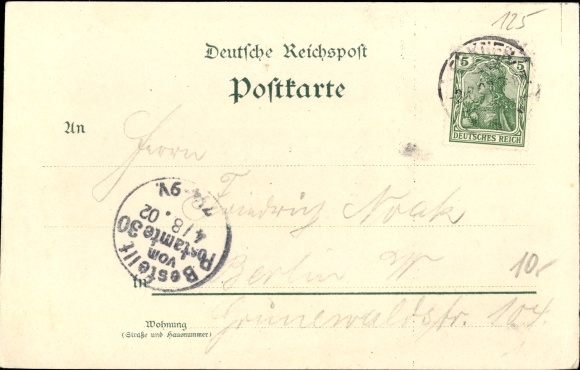 125
Deutsche Reichspost
Postkarte
5 5
DEUTSCHES REICH
An
Herrn
Friedrich Noack
Bestellt
vom
Postamte 30
4/8.02
7¼-9V.
in
Berlin W
10.-
Grunewaldstr. 104.
Wohnung
(Straße und Hausnummer)